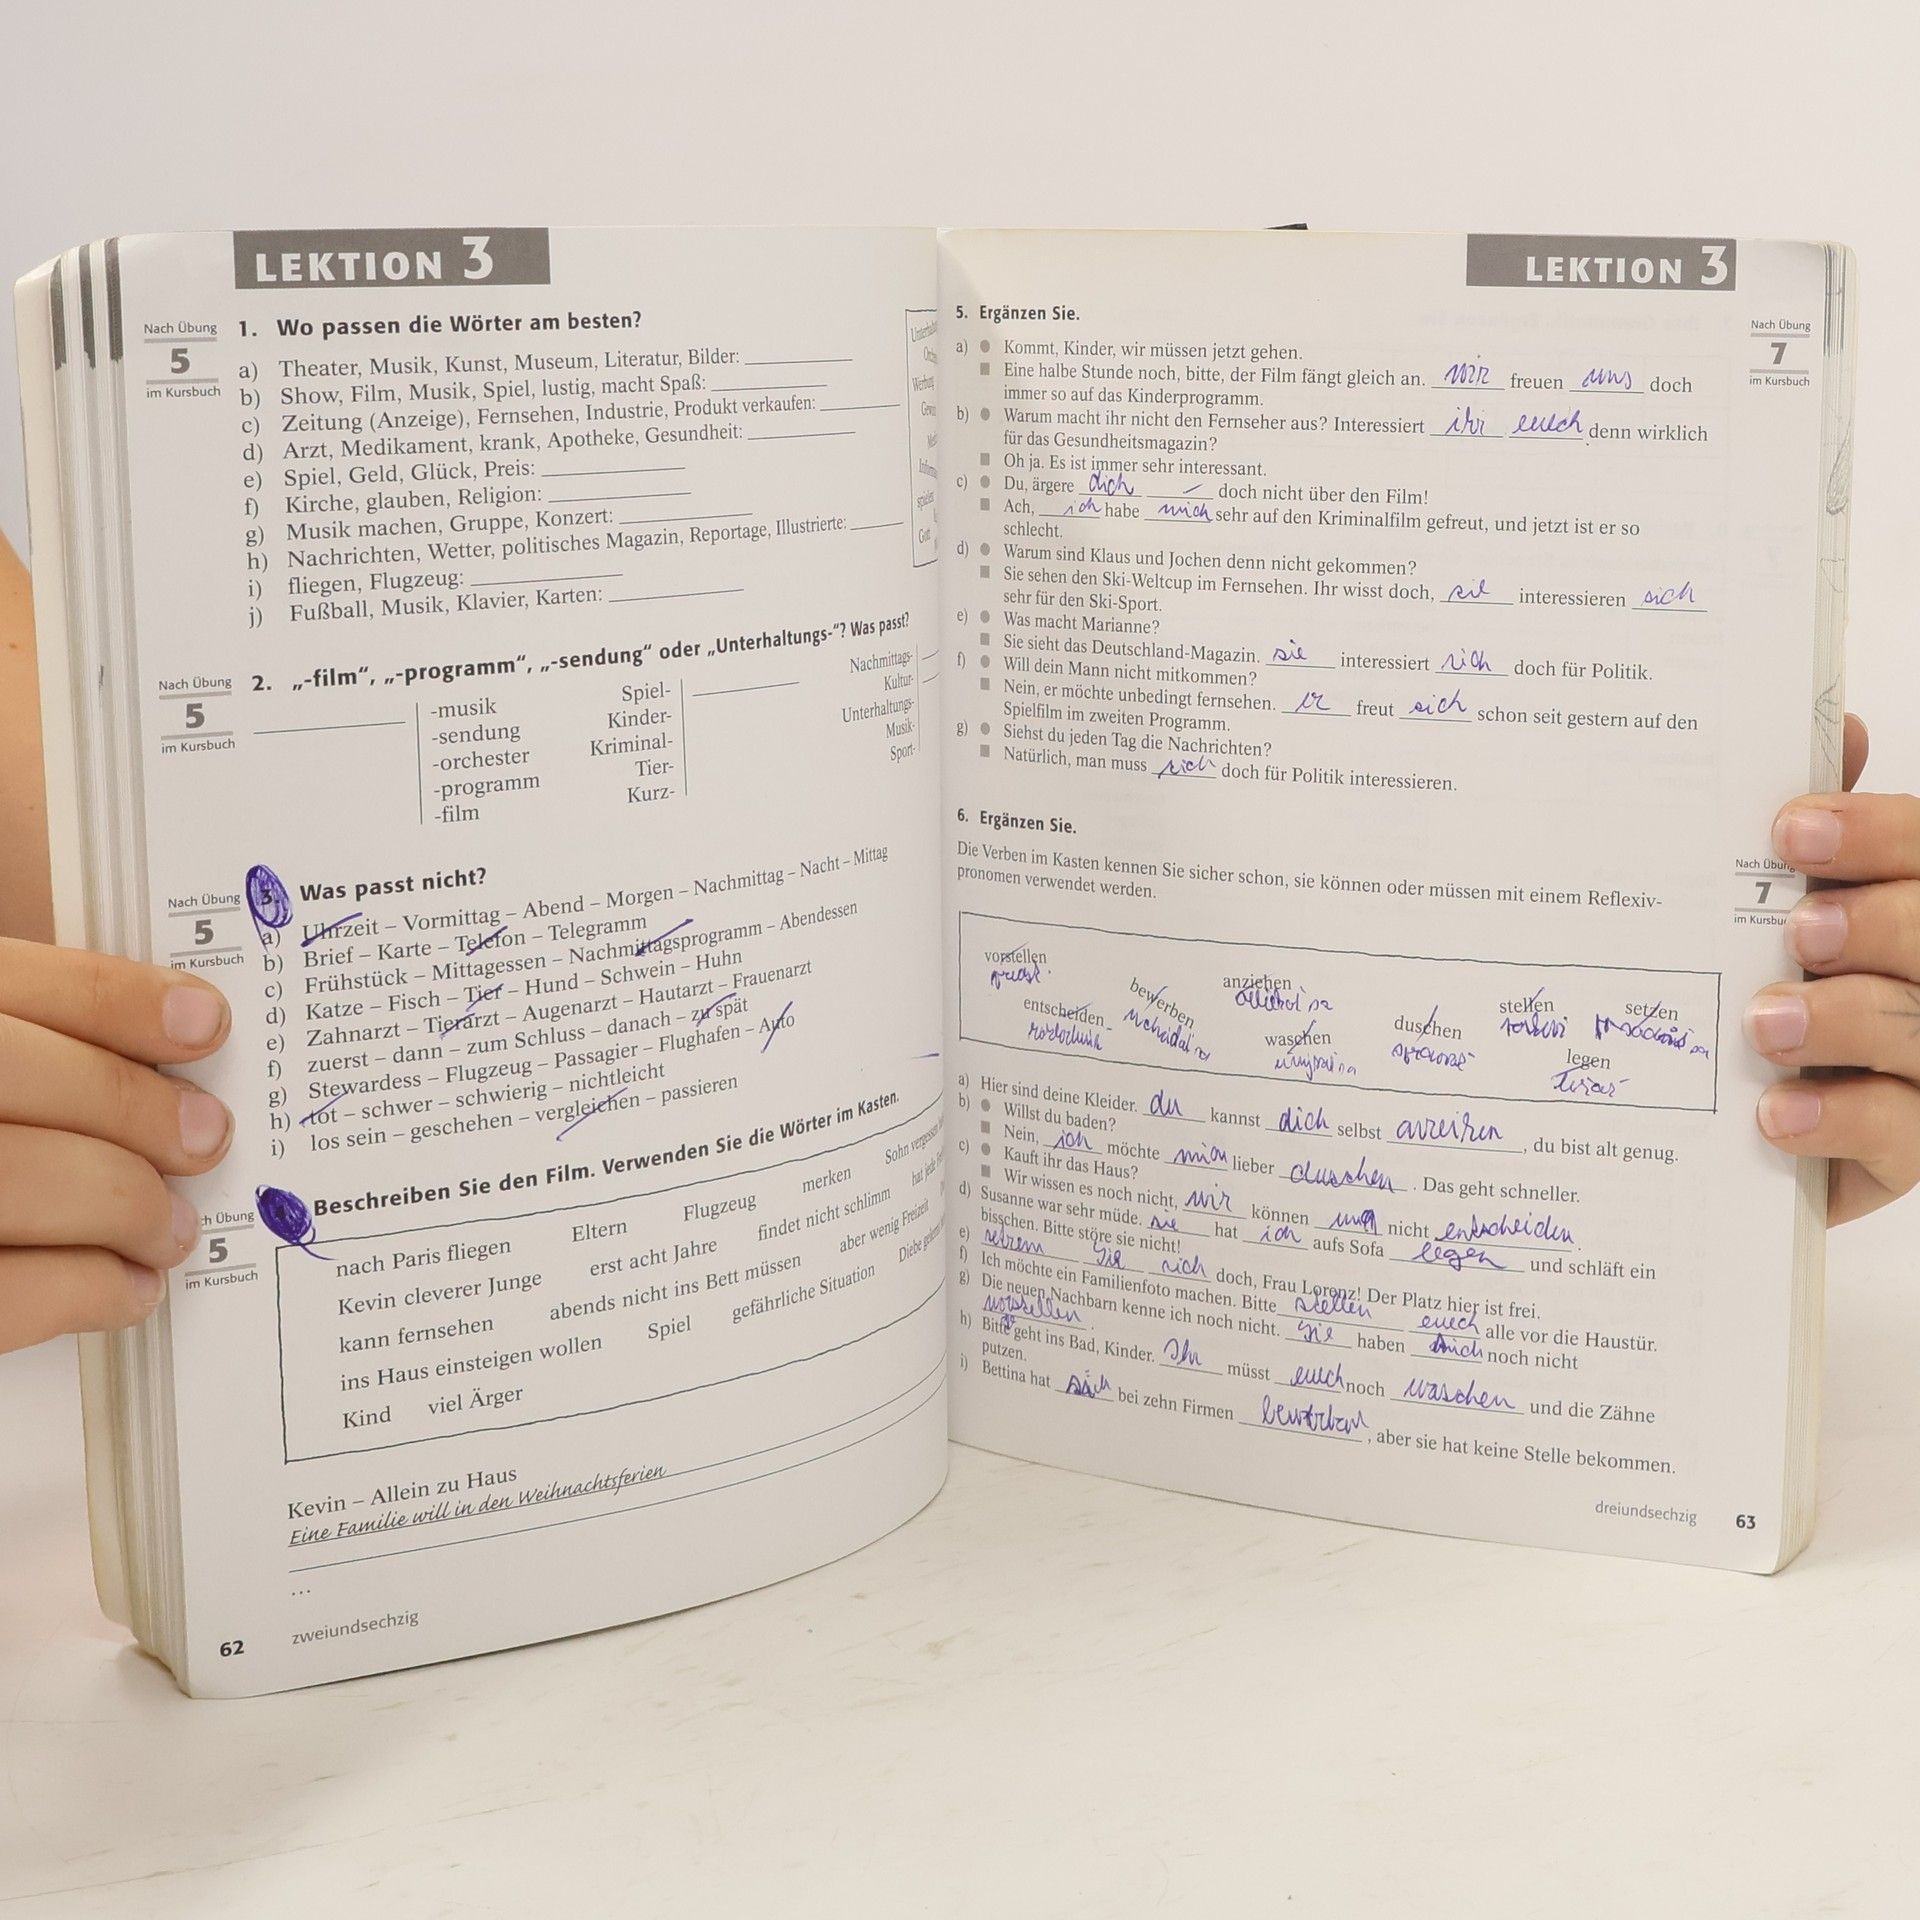 LEKTION 3
Nach Übung
5
im Kursbuch
1. Wo passen die Wörter am besten?
a) Theater, Musik, Kunst, Museum, Literatur, Bilder:
b) Show, Film, Musik, Spiel, lustig, macht Spaß:
c) Zeitung (Anzeige), Fernsehen, Industrie, Produkt verkaufen:
d) Arzt, Medikament, krank, Apotheke, Gesundheit:
e) Spiel, Geld, Glück, Preis:
f) Kirche, glauben, Religion:
g) Musik machen, Gruppe, Konzert:
h) Nachrichten, Wetter, politisches Magazin, Reportage, Illustrierte:
i) fliegen, Flugzeug:
j) Fußball, Musik, Klavier, Karten:
Nach Übung
5
im Kursbuch
2. „-film“, „-programm“, „-sendung“ oder „Unterhaltungs-“? Was passt?
-musik
-sendung
-orchester
-programm
-film
Spiel-
Kinder-
Kriminal-
Tier-
Kurz-
Nachmittags-
Kultur-
Unterhaltungs-
Musik-
Sport-
Nach Übung
5
im Kursbuch
3. Was passt nicht?
a) Uhrzeit – Vormittag – Abend – Morgen – Nachmittag – Nacht – Mittag
b) Brief – Karte – Telefon – Telegramm
c) Frühstück – Mittagessen – Nachmittagsprogramm – Abendessen
d) Katze – Fisch – Tier – Hund – Schwein – Huhn
e) Zahnarzt – Tierarzt – Augenarzt – Hautarzt – Frauenarzt
f) zuerst – dann – zum Schluss – danach – zu spät
g) Stewardess – Flugzeug – Passagier – Flughafen – Auto
h) tot – schwer – schwierig – nichtleicht
i) los sein – geschehen – vergleichen – passieren
Übung
5
im Kursbuch
Beschreiben Sie den Film. Verwenden Sie die Wörter im Kasten.
nach Paris fliegen Eltern Flugzeug merken Sohn
Kevin cleverer Junge erst acht Jahre findet nicht schlimm hat jede
kann fernsehen abends nicht ins Bett müssen aber wenig Freizeit
ins Haus einsteigen wollen Spiel gefährliche Situation Diebe
Kind viel Ärger
Kevin – Allein zu Haus
Eine Familie will in den Weihnachtsferien
...
62 zweiundsechzig
LEKTION 3
Nach Übung
7
im Kursbuch
5. Ergänzen Sie.
a) Kommt, Kinder, wir müssen jetzt gehen.
Eine halbe Stunde noch, bitte, der Film fängt gleich an. wir freuen uns doch
immer so auf das Kinderprogramm.
b) Warum macht ihr nicht den Fernseher aus? Interessiert ihr euch denn wirklich
für das Gesundheitsmagazin?
Oh ja. Es ist immer sehr interessant.
c) Du, ärgere dich – doch nicht über den Film!
Ach, ich habe mich sehr auf den Kriminalfilm gefreut, und jetzt ist er so
schlecht.
d) Warum sind Klaus und Jochen denn nicht gekommen?
Sie sehen den Ski-Weltcup im Fernsehen. Ihr wisst doch, sie interessieren sich
sehr für den Ski-Sport.
e) Was macht Marianne?
Sie sieht das Deutschland-Magazin. sie interessiert sich doch für Politik.
f) Will dein Mann nicht mitkommen?
Nein, er möchte unbedingt fernsehen. er freut sich schon seit gestern auf den
Spielfilm im zweiten Programm.
g) Siehst du jeden Tag die Nachrichten?
Natürlich, man muss sich doch für Politik interessieren.
Nach Übung
7
im Kursbu
6. Ergänzen Sie.
Die Verben im Kasten kennen Sie sicher schon, sie können oder müssen mit einem Reflexiv-
pronomen verwendet werden.
vorstellen bewerben anziehen stellen setzen
entscheiden waschen duschen legen
a) Hier sind deine Kleider. du kannst dich selbst , du bist alt genug.
b) Willst du baden?
Nein, ich möchte lieber duschen. Das geht schneller.
c) Kauft ihr das Haus?
Wir wissen es noch nicht, wir können nicht entscheiden.
d) Susanne war sehr müde. sie hat aufs Sofa legen und schläft ein
bisschen. Bitte störe sie nicht!
e) Sie sich doch, Frau Lorenz! Der Platz hier ist frei.
f) Ich möchte ein Familienfoto machen. Bitte stellen euch alle vor die Haustür.
g) Die neuen Nachbarn kenne ich noch nicht. Sie haben noch nicht
vorstellen.
h) Bitte geht ins Bad, Kinder. Ihr müsst euch noch waschen und die Zähne
putzen.
i) Bettina hat sich bei zehn Firmen , aber sie hat keine Stelle bekommen.
dreiundsechzig 63